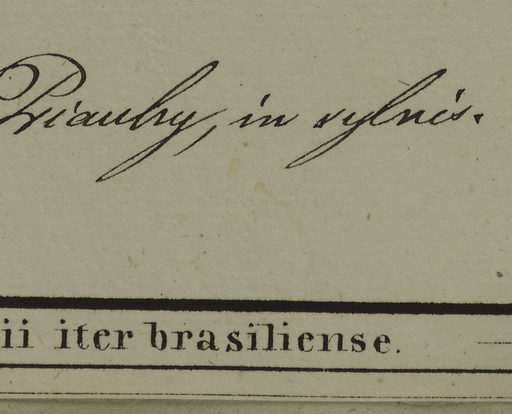 Piauhy, in sylvis.
ii iter brasiliense.